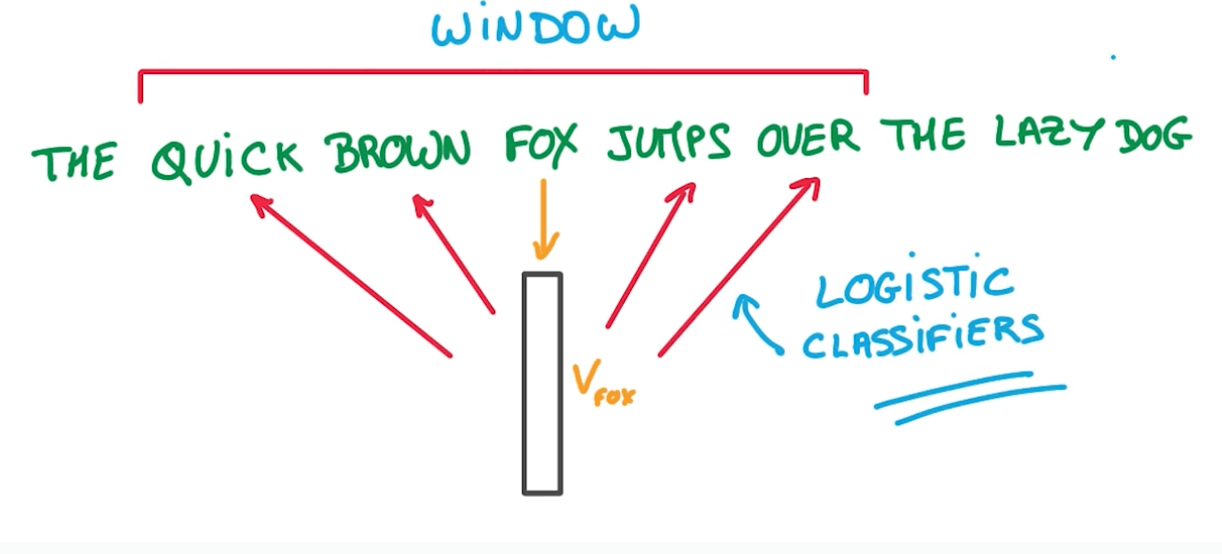 WINDOW
THE QUICK BROWN FOX JUMPS OVER THE LAZY DOG
LOGISTIC
CLASSIFIERS
VFOX